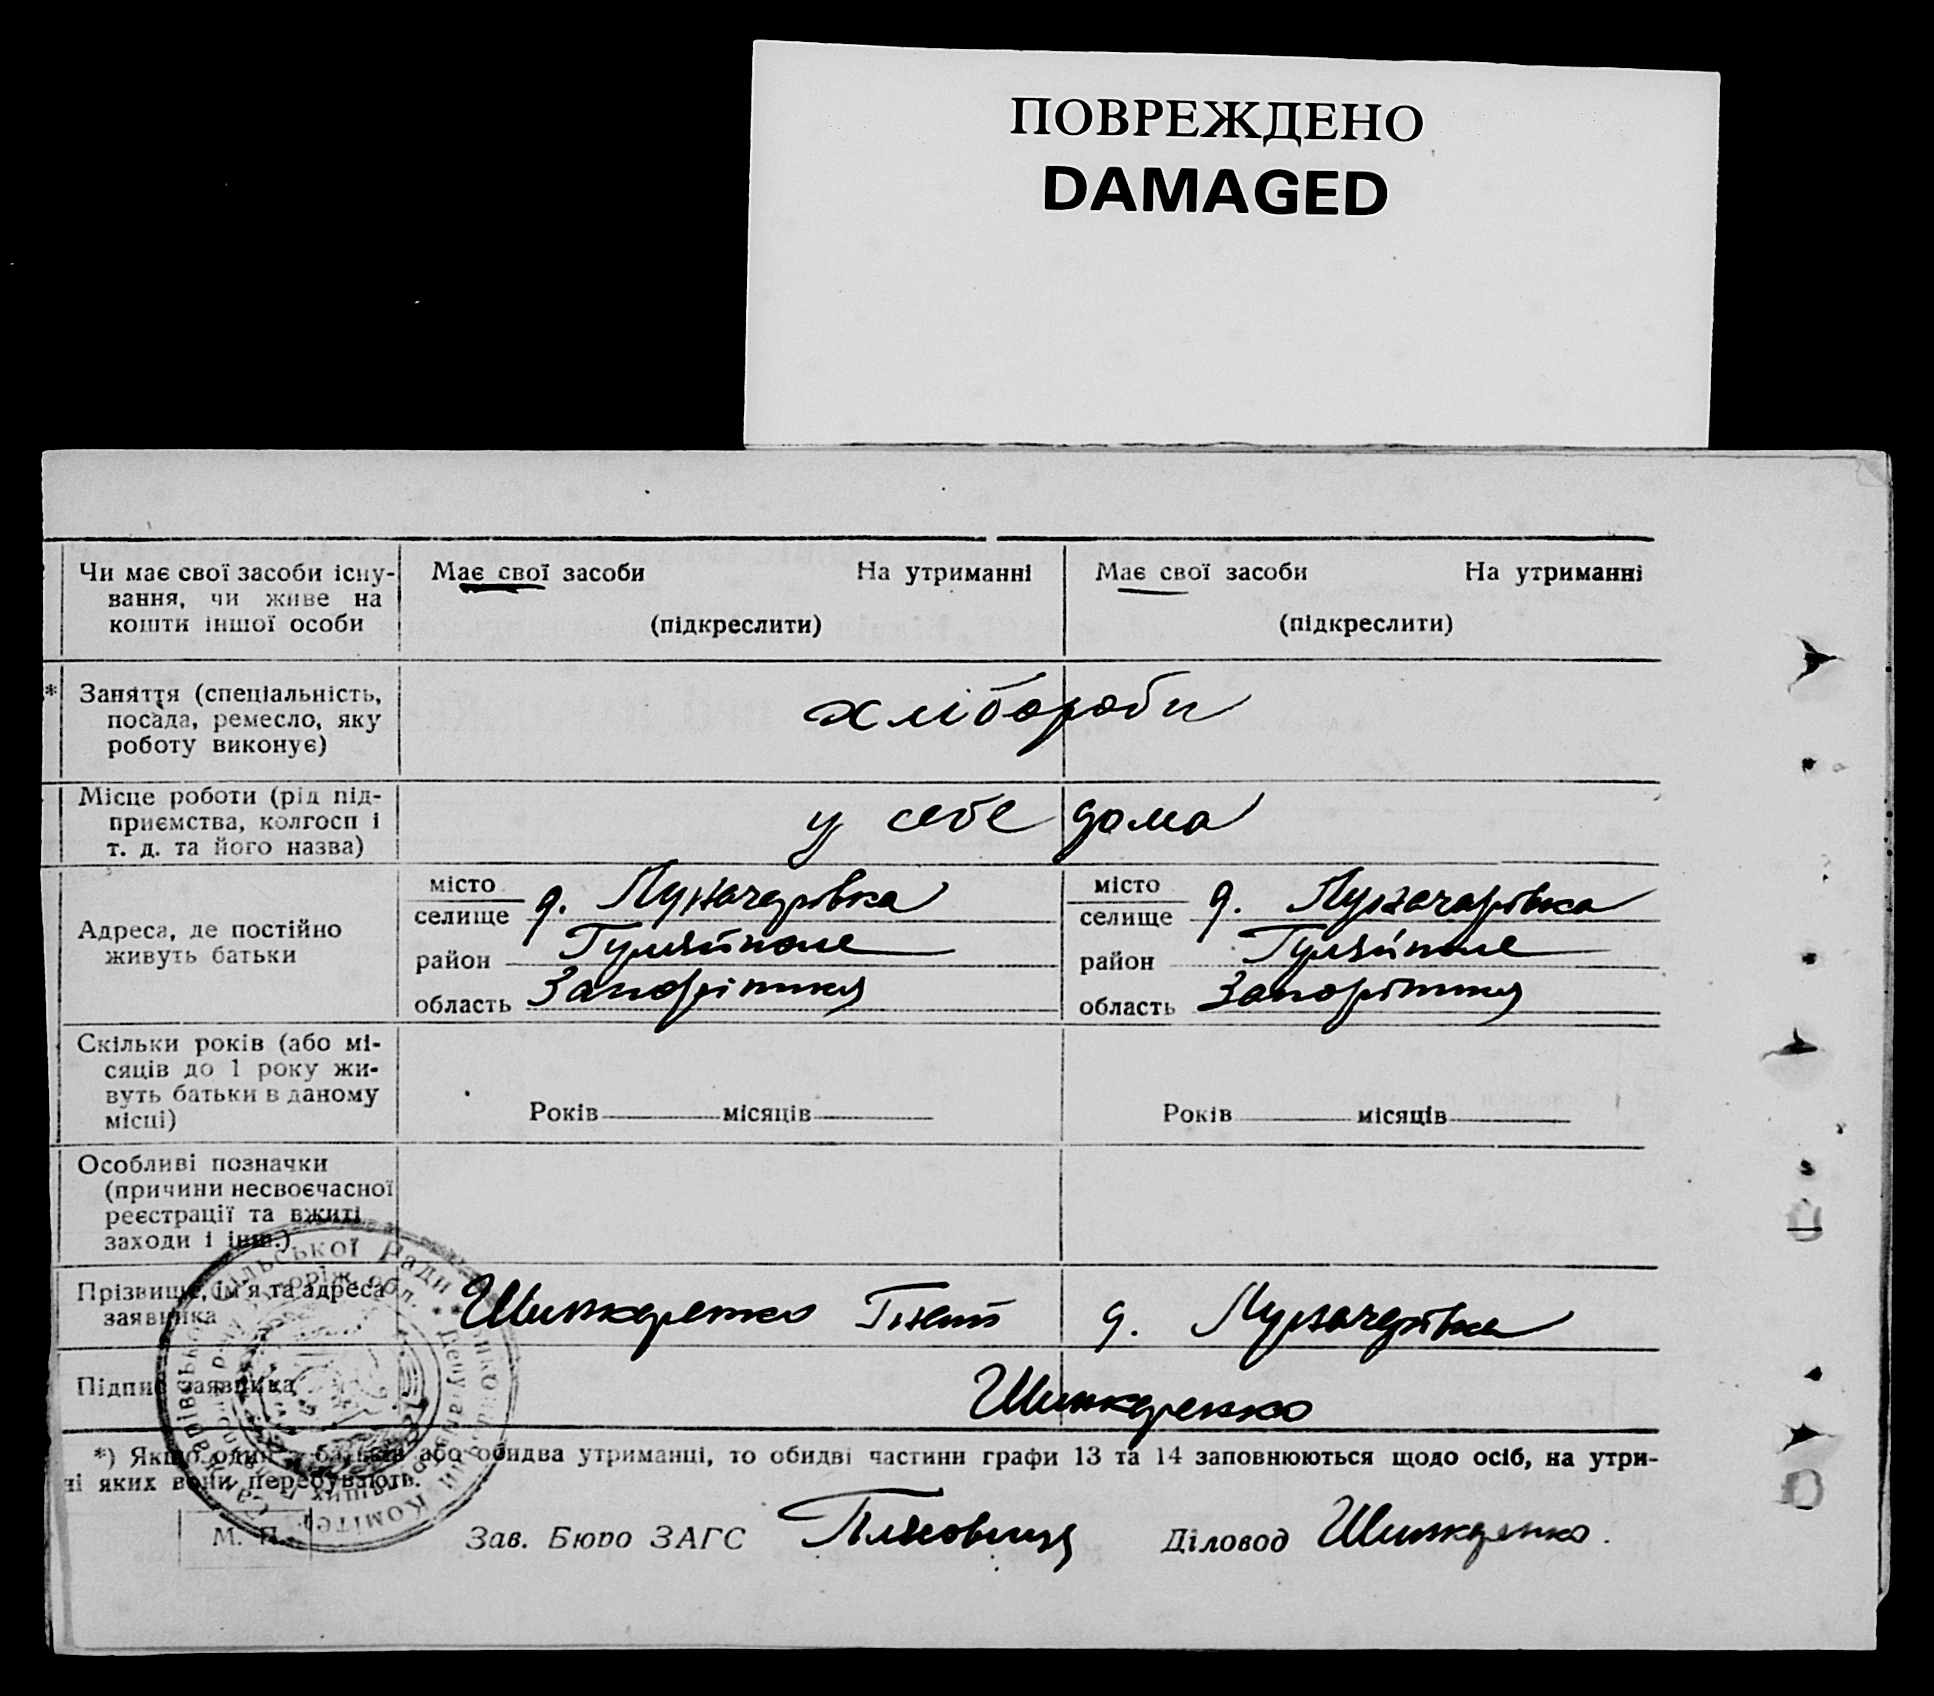 ПОВРЕЖДЕНО
DAMAGED
Чи має свої засоби існу-
вання, чи живе на
кошти іншої особи
Має свої засоби На утриманні
(підкреслити)
Має свої засоби На утриманні
(підкреслити)
* Заняття (спеціальність,
посада, ремесло, яку
роботу виконує)
хлібороби
Місце роботи (рід під-
приємства, колгосп і
т. д. та його назва)
у себе дома
Адреса, де постійно
живуть батьки
місто
селище д. Луначарівка
район Гуляйполе
область Запоріжжя
місто
селище д. Луначарівка
район Гуляйполе
область Запоріжжя
Скільки років (або мі-
сяців до 1 року жи-
вуть батьки в даному
місці)
Років місяців
Років місяців
Особливі позначки
(причини несвоєчасної
реєстрації та вжиті
заходи і інш.)
Прізвище, ім'я та адреса
заявника
Шинкаренко Гнат д. Луначарівка
Підпис заявника
Шинкаренко
*) Якщо один з батьків або обидва утриманці, то обидві частини графи 13 та 14 заповнюються щодо осіб, на утри-
ні яких вони перебувають.
М. П.
Зав. Бюро ЗАГС Діловод Шинкаренко.